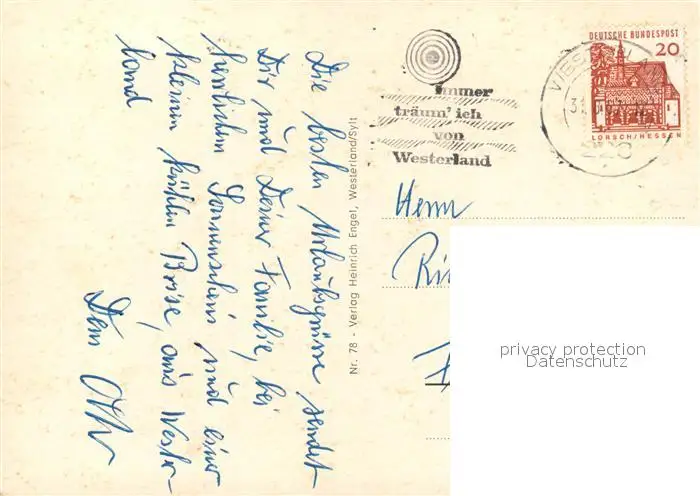 Die besten Urlaubsgrüsse sendet
Dir und Deiner Familie, bei
herrlichem Sonnenschein und einer
kleinen kühlen Brise, aus Wester-
land
Dein
Nr. 78 - Verlag Heinrich Engel, Westerland/Sylt
immer
träum' ich
von
Westerland
DEUTSCHE BUNDESPOST
20
LORSCH/HESSEN
Herrn
privacy protection
Datenschutz